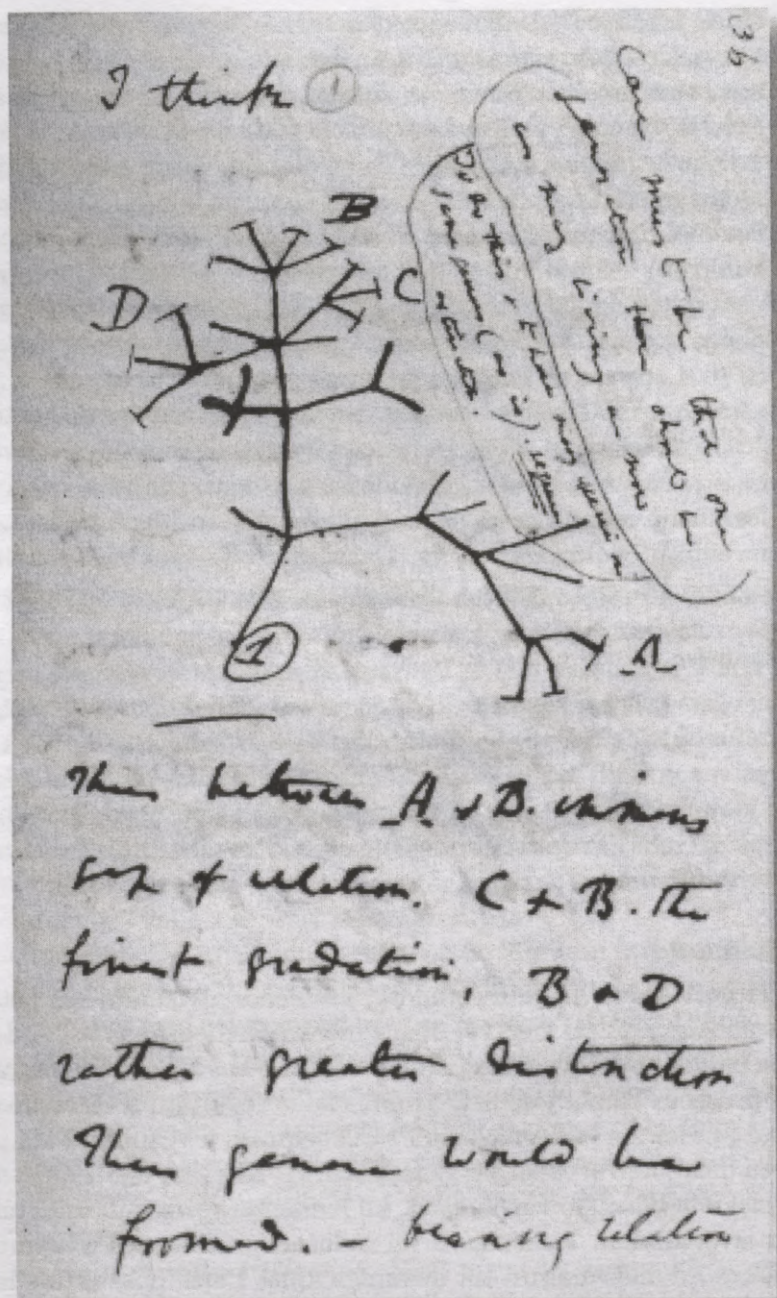 36
I think ①
Case must be that one
generation then should be
as many living as now
To do this & to have many species in
same genus (as is). requires
extinction.
B
C
D
A
①
Thus between A & B. immense
gap of relation. C & B. the
finest gradation, B & D
rather greater distinction
Thus genera would be
formed. — bearing relation